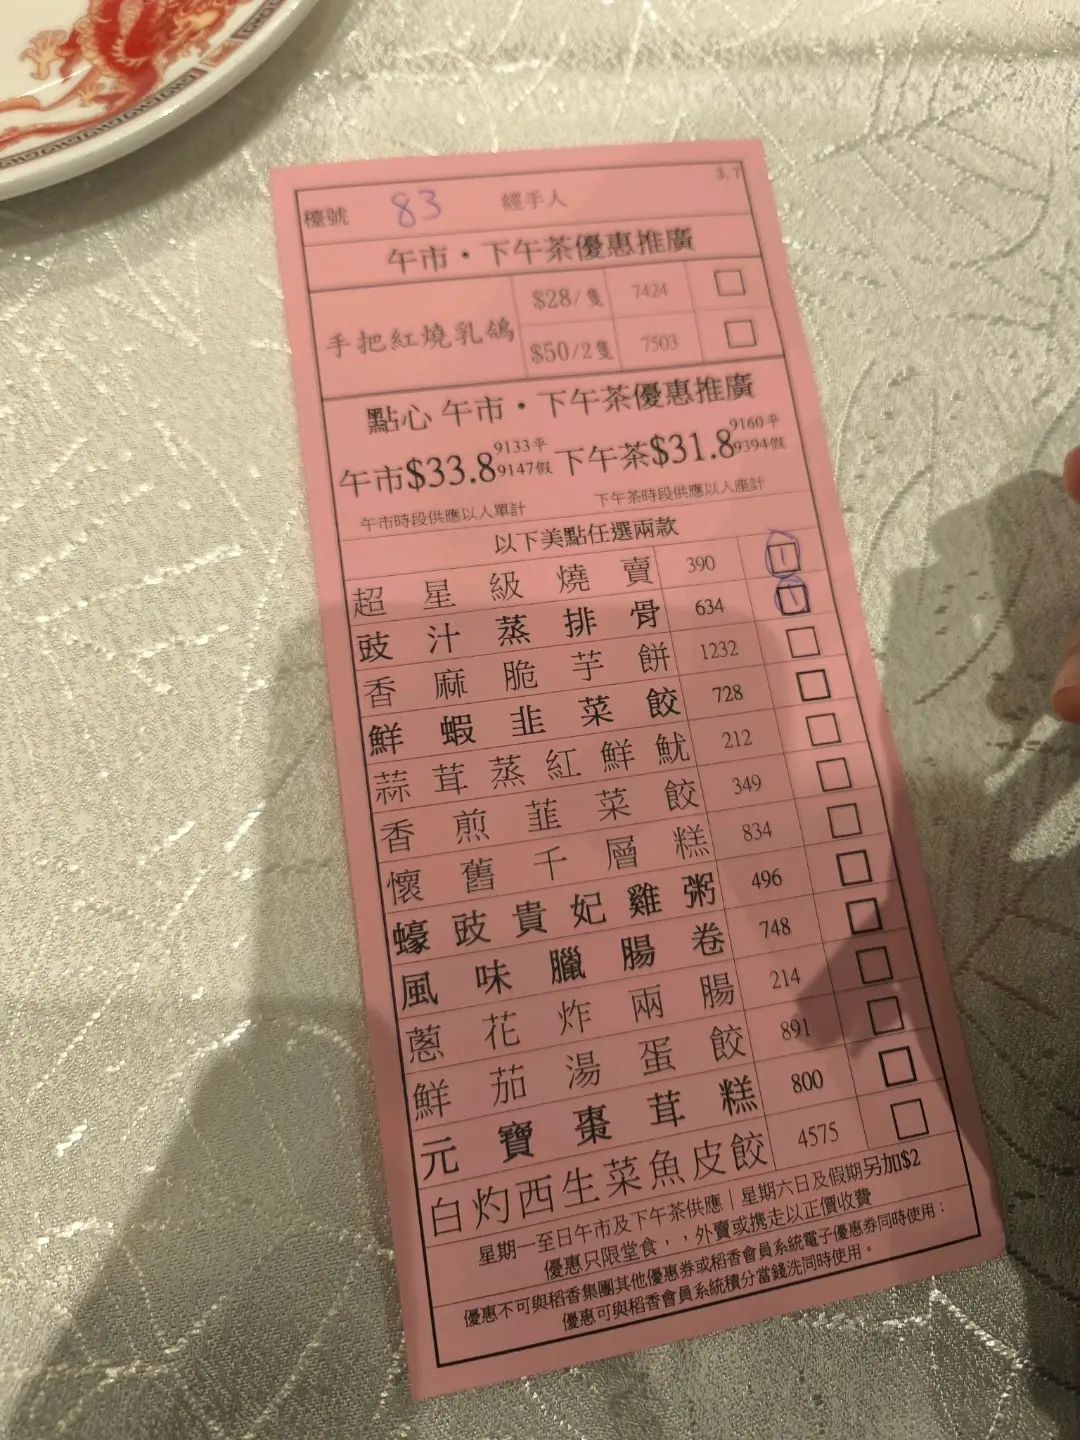 3.7
檯號 83 經手人
午市・下午茶優惠推廣
手把紅燒乳鴿
$28/隻 7424
$50/2隻 7503
點心 午市・下午茶優惠推廣
午市$33.8 9133平 9147假 下午茶$31.8 9160平 9394假
午市時段供應以入單計 下午茶時段供應以入座計
以下美點任選兩款
超星級燒賣 390 1
豉汁蒸排骨 634 1
香麻脆芋餅 1232
鮮蝦韭菜餃 728
蒜茸蒸紅鮮魷 212
香煎韭菜餃 349
懷舊千層糕 834
蠔豉貴妃雞粥 496
風味臘腸卷 748
蔥花炸兩腸 214
鮮茄湯蛋餃 891
元寶棗茸糕 800
白灼西生菜魚皮餃 4575
星期一至日午市及下午茶供應｜星期六日及假期另加$2
優惠只限堂食，，外賣或携走以正價收費
優惠不可與稻香集團其他優惠券或稻香會員系統電子優惠券同時使用：
優惠可與稻香會員系統積分當錢洗同時使用。